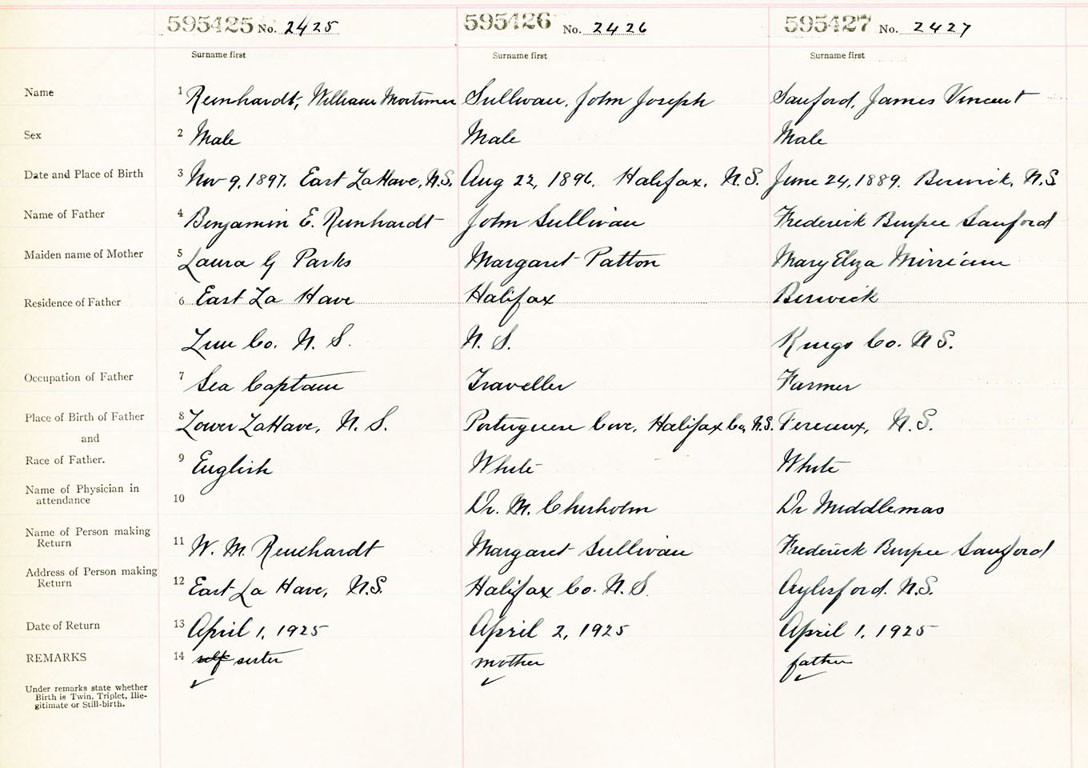 595425 No. 2425 595426 No. 2426 595427 No. 2427
Surname first Surname first Surname first
Name 1 Reinhardt, William Mortimer Sullivan, John Joseph Sanford, James Vincent
Sex 2 Male Male Male
Date and Place of Birth 3 Nov 9, 1897, East LaHave, N.S. Aug 22, 1896, Halifax, N.S. June 24, 1889. Berwick, N.S
Name of Father 4 Benjamin E. Reinhardt John Sullivan Frederick Burpee Sanford
Maiden name of Mother 5 Laura G Parks Margaret Patton Mary Eliza
Residence of Father 6 East La Have Halifax Berwick
Lun Co. N. S. N. S. Kings Co. N S.
Occupation of Father 7 Sea Captain Traveller Farmer
Place of Birth of Father 8 Lower LaHave, N. S. Portuguese Cove, Halifax Co, N.S. N.S.
and
Race of Father. 9 English White White
Name of Physician in
attendance 10 Dr. M. Chisholm Dr Middlemas
Name of Person making
Return 11 W. M. Reinhardt Margaret Sullivan Frederick Burpee Sanford
Address of Person making
Return 12 East La Have, N.S. Halifax Co. N.S. Aylesford. N.S.
Date of Return 13 April 1, 1925 April 2, 1925 April 1, 1925
REMARKS 14 self sister mother father
Under remarks state whether
Birth is Twin, Triplet, Ille-
gitimate or Still-birth.